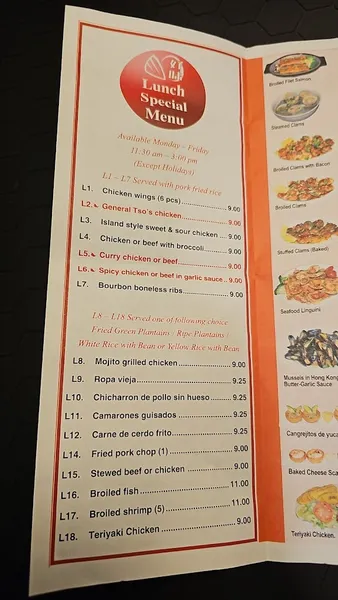 Lunch
Special
Menu
Available Monday - Friday
11:30 am - 3:00 pm
(Except Holidays)
L1 - L7 Served with pork fried rice
L1. Chicken wings (6 pcs) 9.00
L2. General Tso's chicken 9.00
L3. Island style sweet & sour chicken 9.00
L4. Chicken or beef with broccoli 9.00
L5. Curry chicken or beef 9.00
L6. Spicy chicken or beef in garlic sauce 9.00
L7. Bourbon boneless ribs 9.00
L8 - L18 Served one of following choice
Fried Green Plantains / Ripe Plantains /
White Rice with Bean or Yellow Rice with Bean
L8. Mojito grilled chicken 9.00
L9. Ropa vieja 9.25
L10. Chicharron de pollo sin hueso 9.25
L11. Camarones guisados 9.25
L12. Carne de cerdo frito 9.25
L14. Fried pork chop (1) 9.00
L15. Stewed beef or chicken 9.00
L16. Broiled fish 11.00
L17. Broiled shrimp (5) 11.00
L18. Teriyaki Chicken 9.00
Broiled Filet Salmon
Steamed Clams
Broiled Clams with Bacon
Broiled Clams
Stuffed Clams (Baked)
Seafood Linguini
Mussels in Hong Kong
Butter-Garlic Sauce
Cangrejitos de yuca
Baked Cheese Sca
Teriyaki Chicken